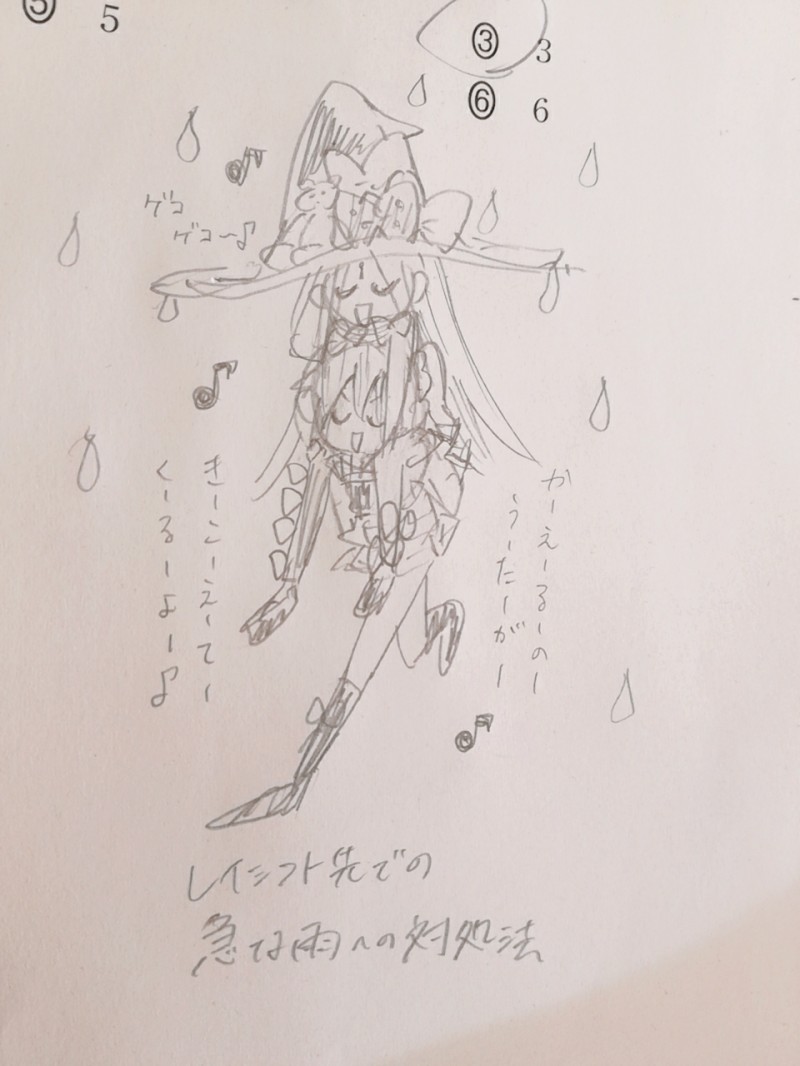 ⑤ 5
③ 3
⑥ 6
ゲコ
ゲコ〜♪
かーえーるーのー
うーたーがー
きーこーえーてー
くーるーよー♪
レイシフト先での
急な雨への対処法